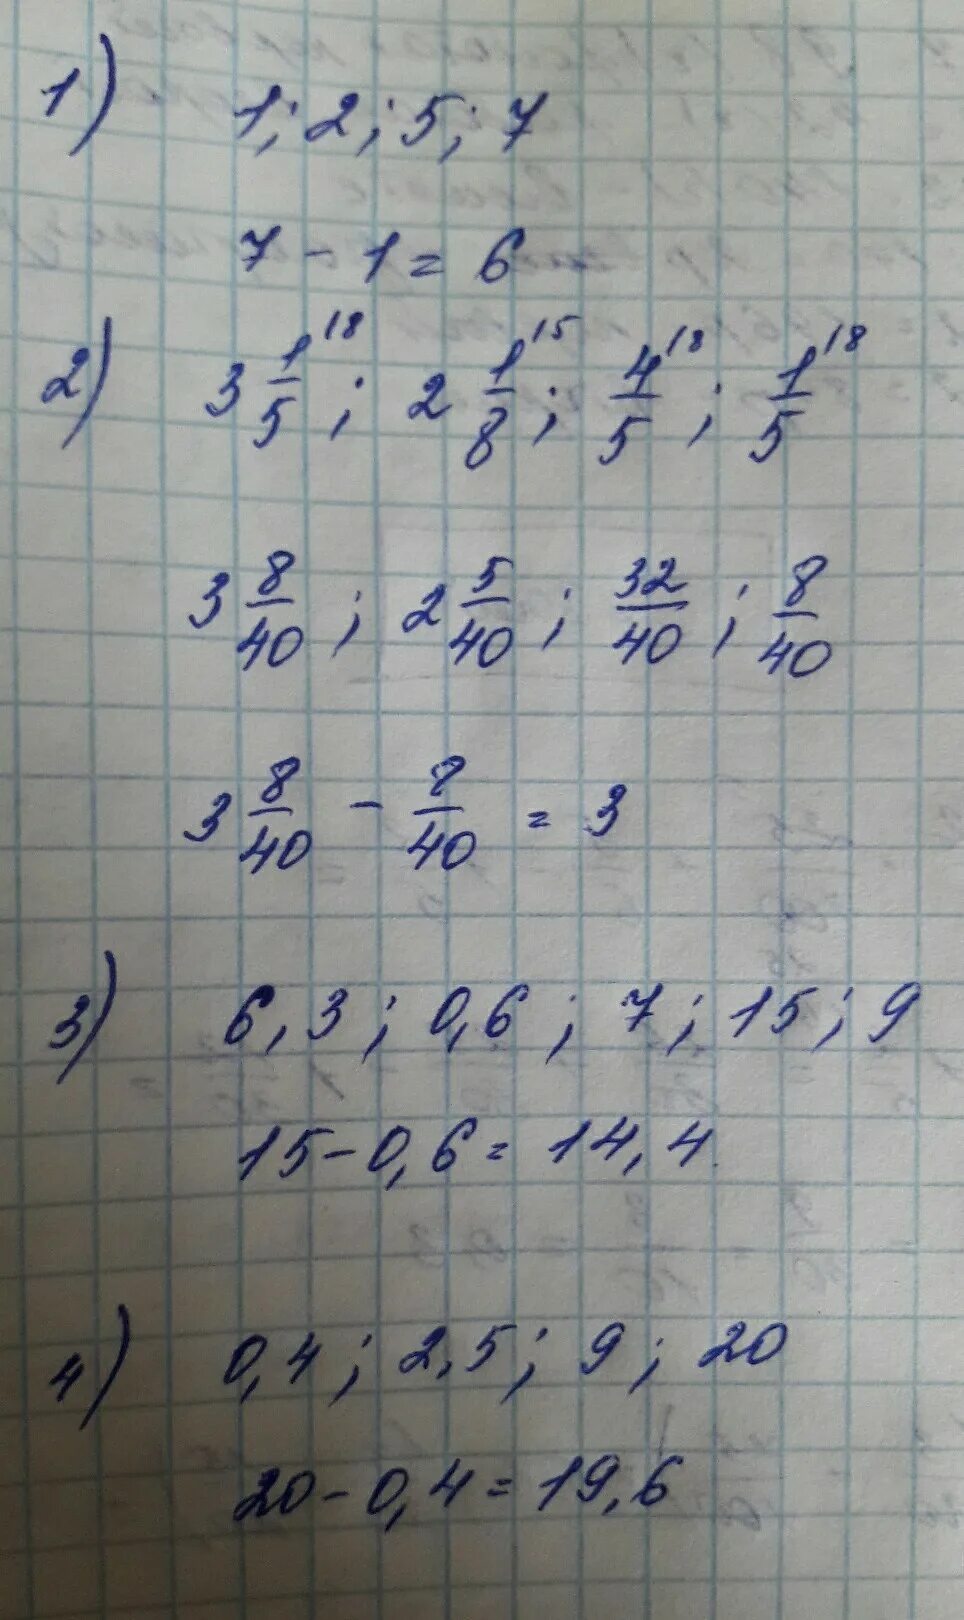 1) 1; 2; 5; 7
7 - 1 = 6
2) 3 1/5 \8; 2 1/8 \5; 4/5 \8; 1/5 \8
3 8/40; 2 5/40; 32/40; 8/40
3 8/40 - 8/40 = 3
3) 6,3; 0,6; 7; 15; 9
15 - 0,6 = 14,4
4) 0,4; 2,5; 9; 20
20 - 0,4 = 19,6